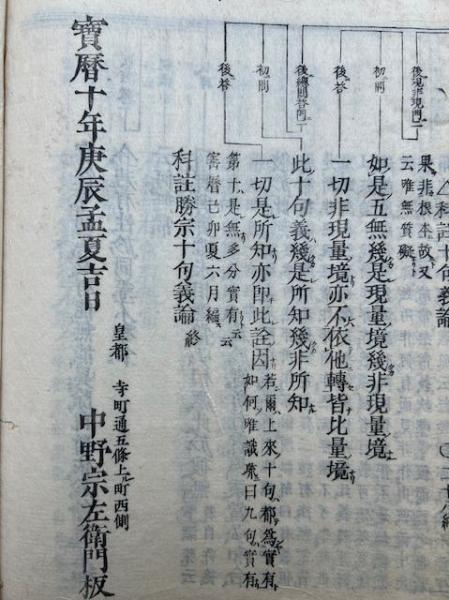 科註十句義論
後現非現門二
果非根本故又
云唯無質礙
初問
如是五無幾是現量境幾非現量境
後答
一切非現量境亦不依他轉皆比量境
後總問答門二
此十句義幾是所知幾非所知
初問
一切是所知亦即此詮因
若爾上來十句都為實有
如何唯識疏曰九句實有
後答
第十是無多分實有云云
寶曆己卯夏六月編
科註勝宗十句義論 終
皇都 寺町通五條上ル町西側
寶曆十年庚辰孟夏吉日 中野宗左衛門板